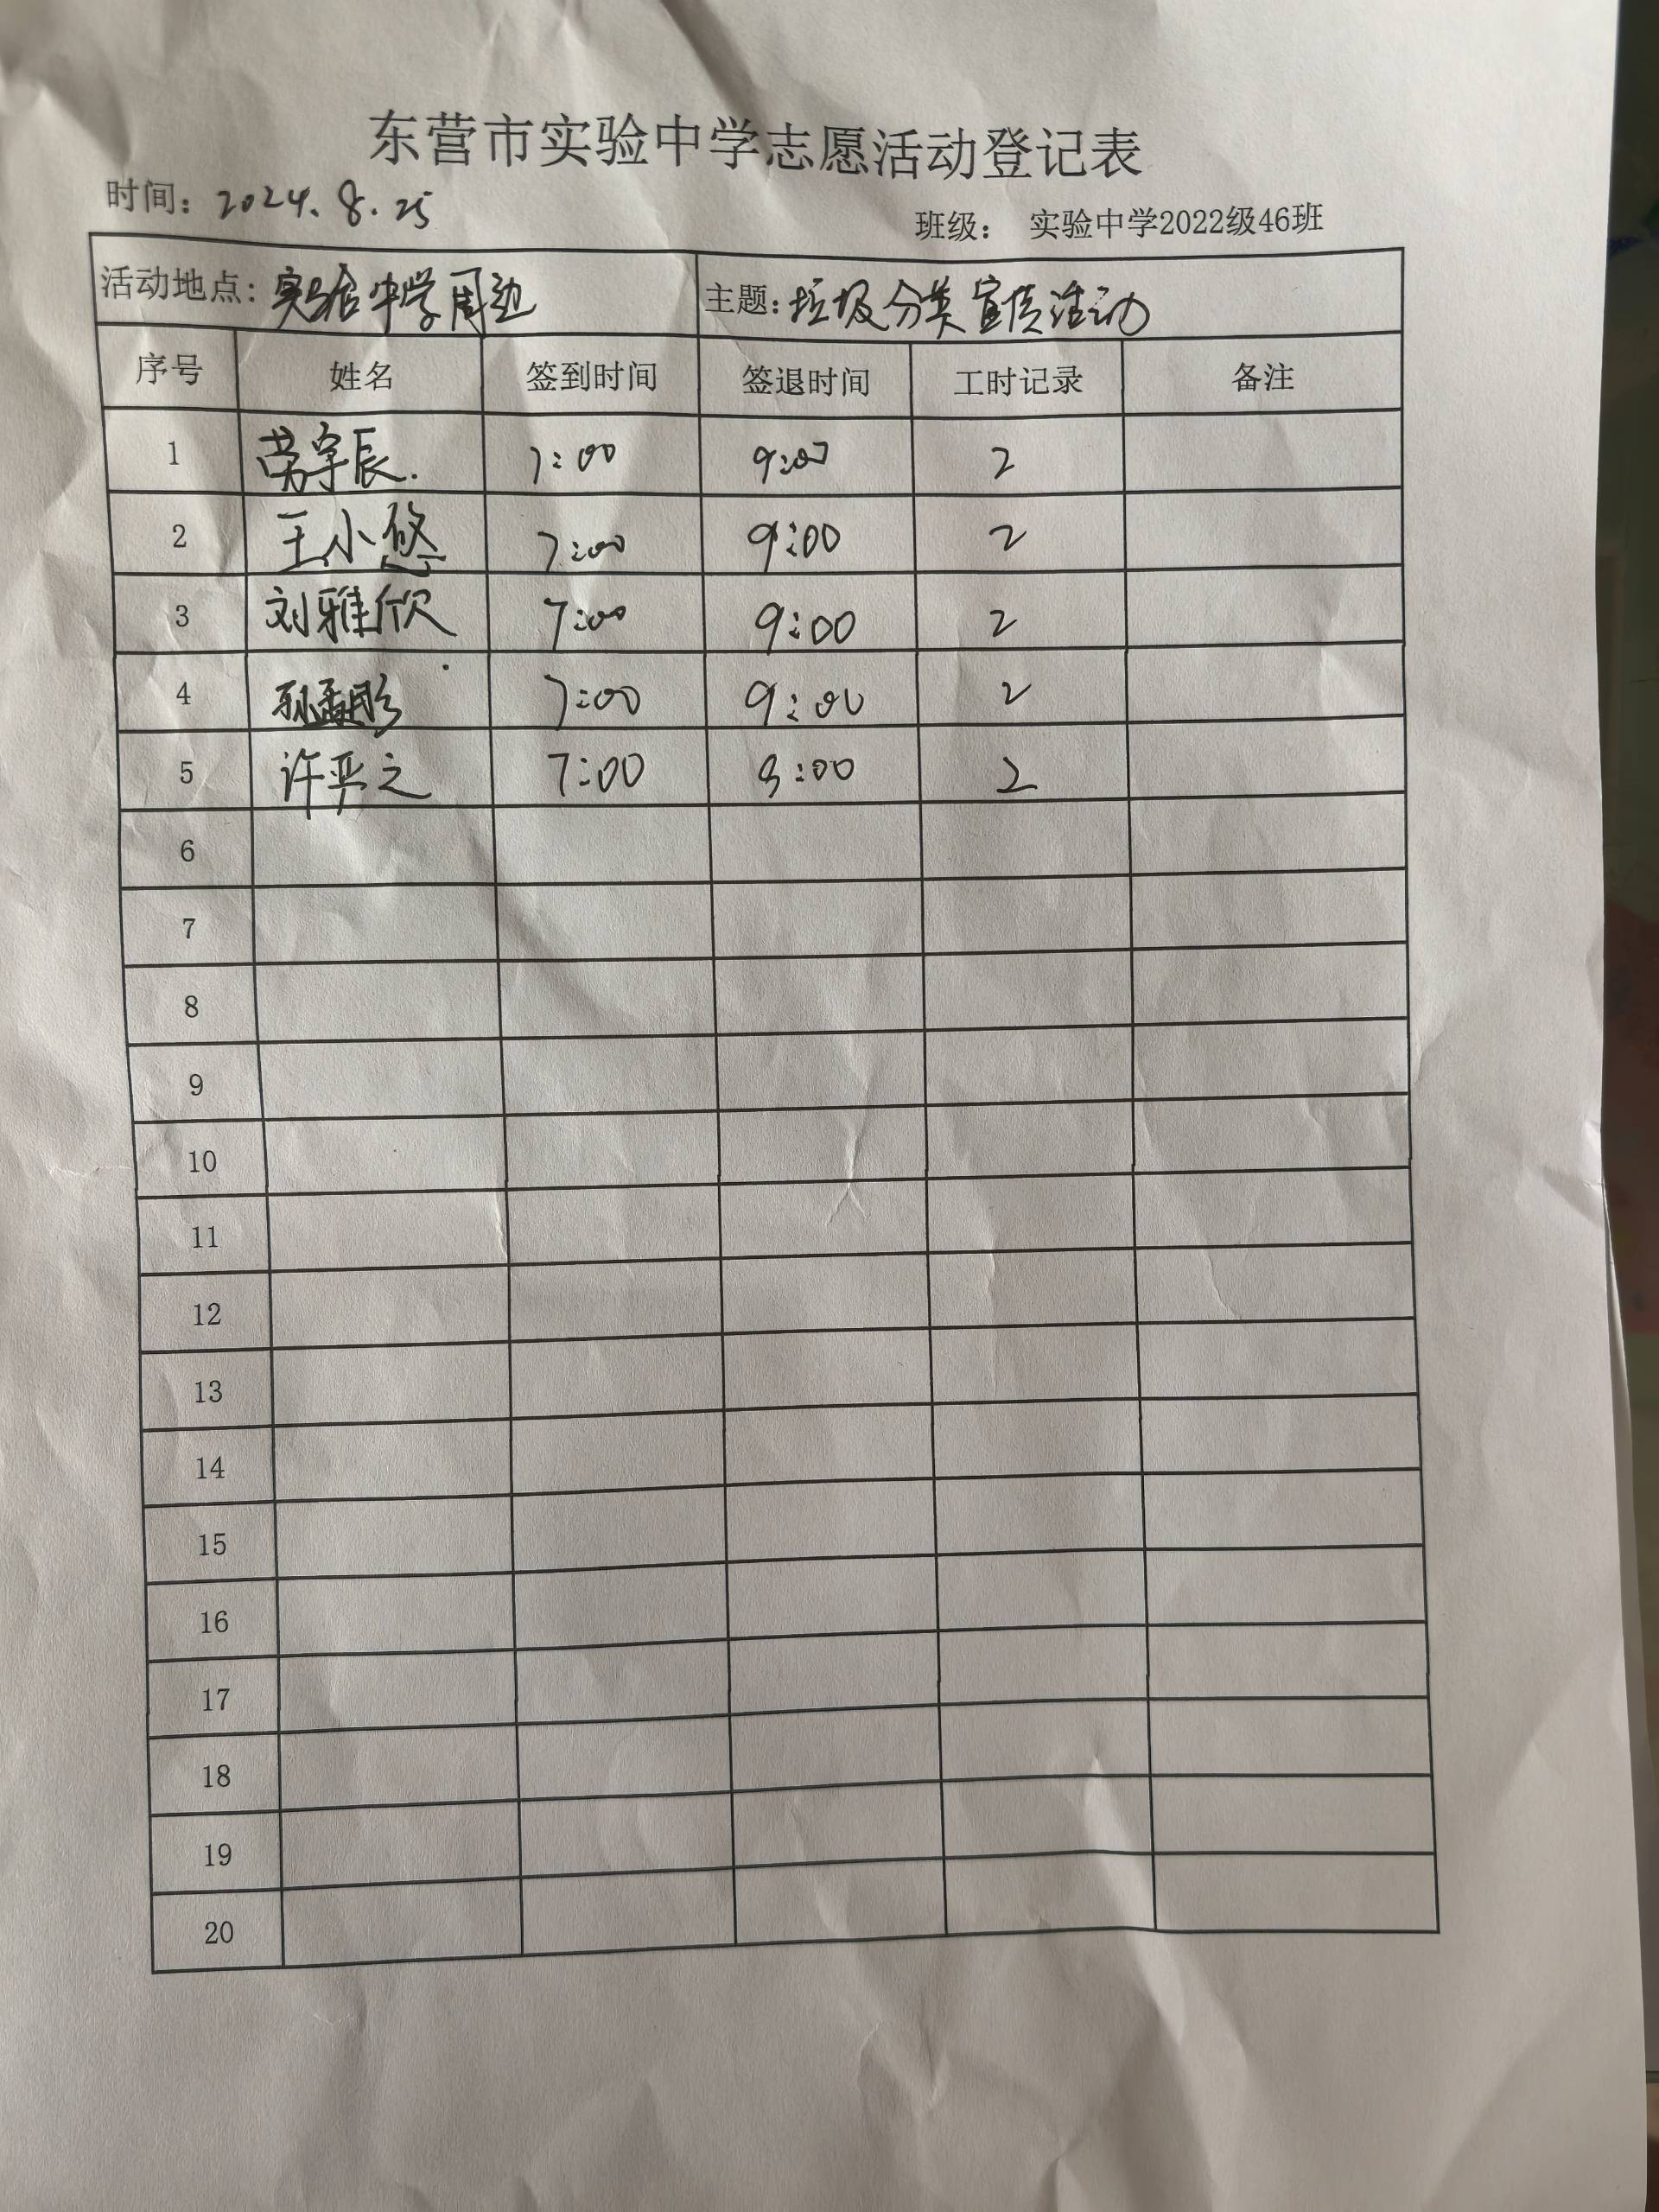 东营市实验中学志愿活动登记表
时间：2024.8.25
班级： 实验中学2022级46班
活动地点：实验中学周边 主题：垃圾分类宣传活动
序号 姓名 签到时间 签退时间 工时记录 备注
1 劳宇辰. 7:00 9:00 2
2 王小悠 7:00 9:00 2
3 刘雅欣 7:00 9:00 2
4 孙孟彤 7:00 9:00 2
5 许严之 7:00 9:00 2
6
7
8
9
10
11
12
13
14
15
16
17
18
19
20